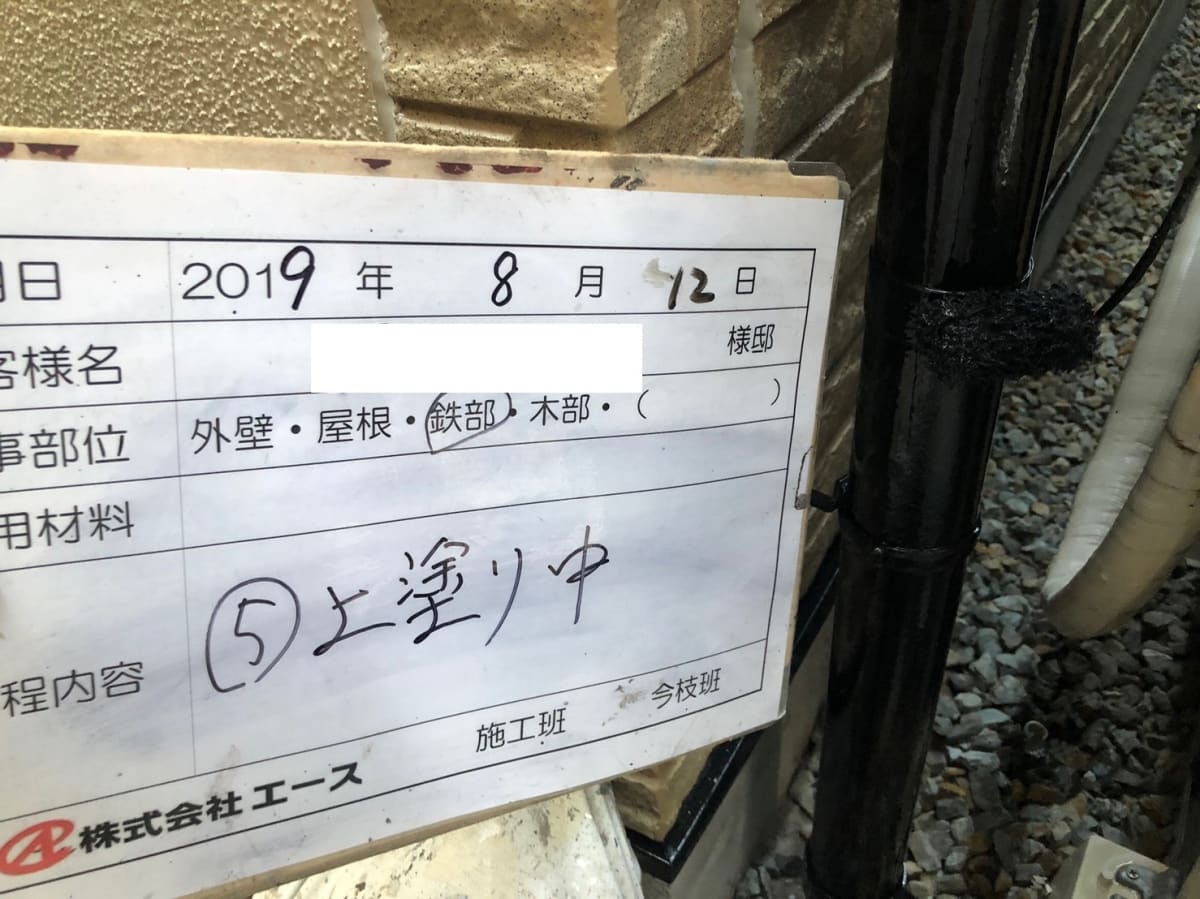 月日 2019年 8月 12日
客様名 様邸
事部位 外壁・屋根・鉄部・木部・( )
用材料
程内容 ⑤上塗り中
施工班 今枝班
株式会社エース